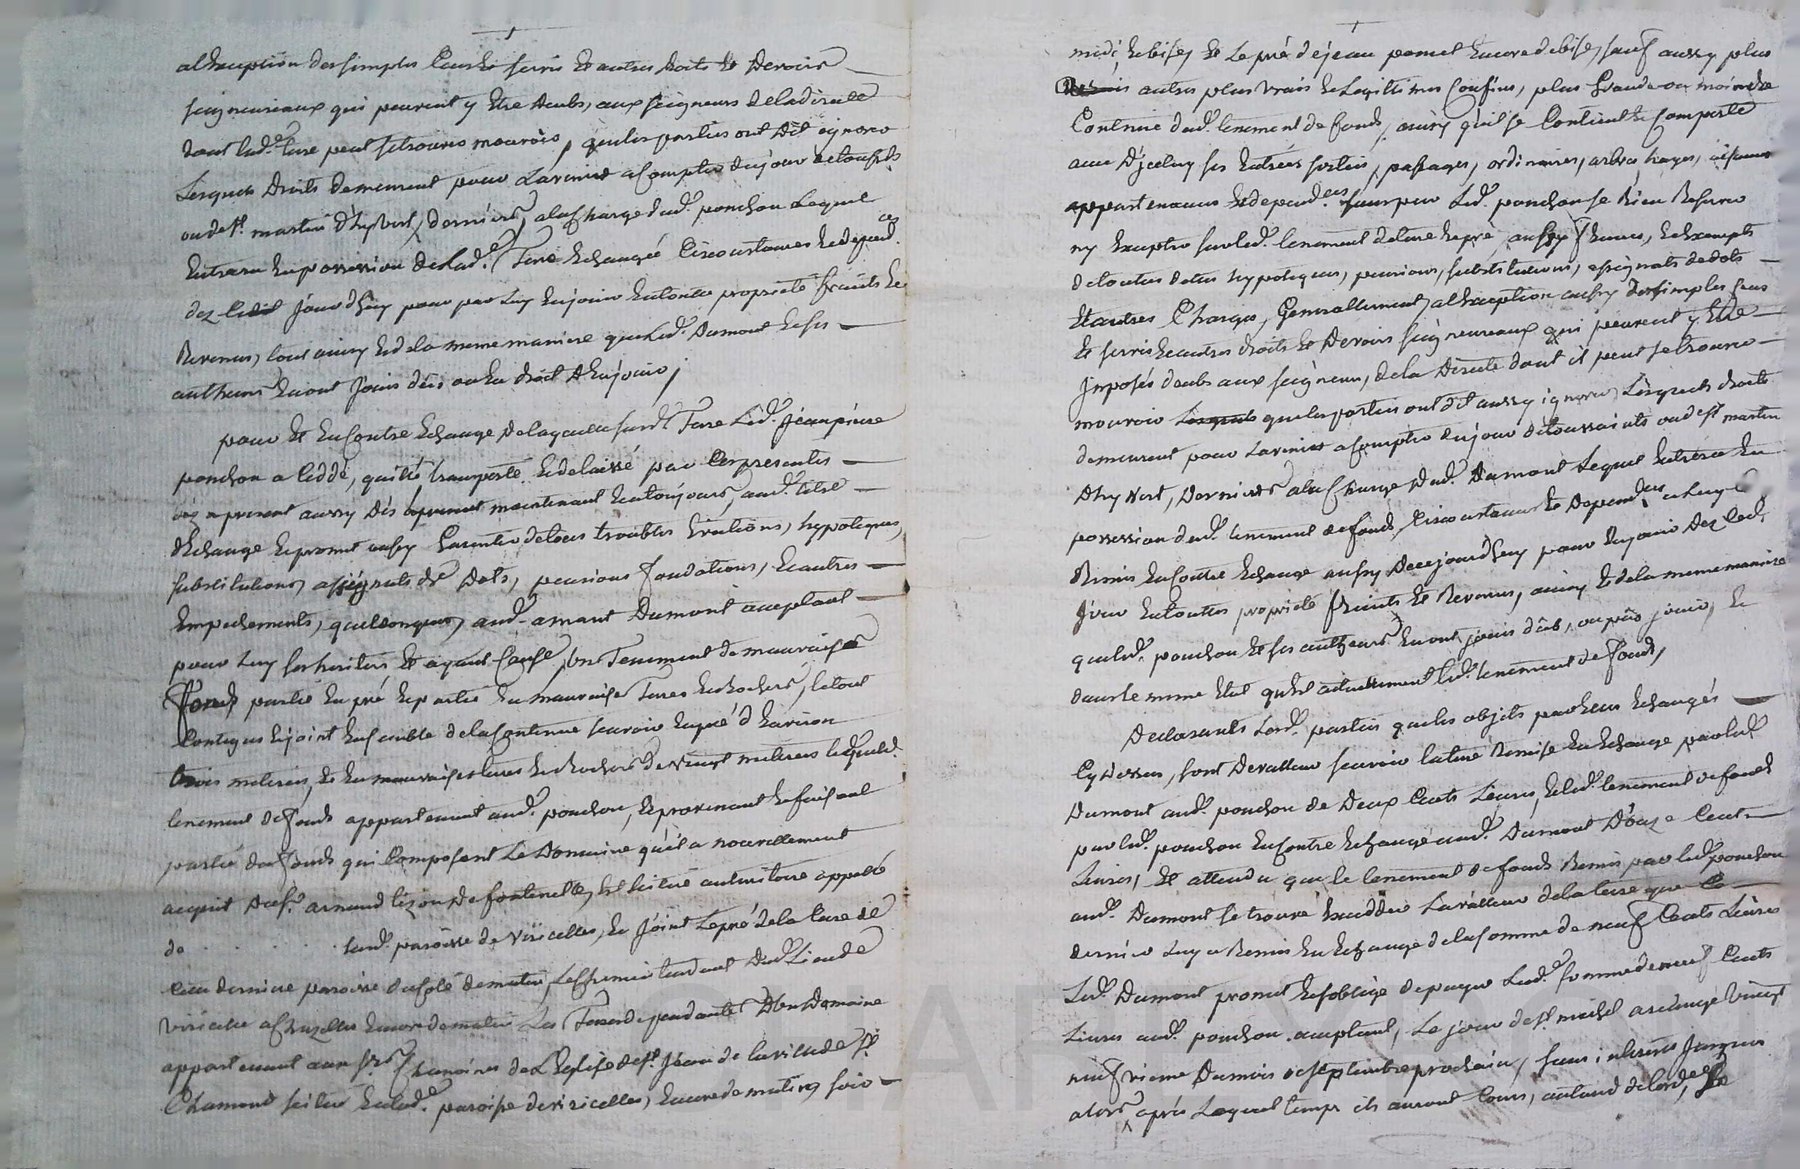 alexception des simples Cens et servis et autres droits et Devoirs
seigneuriaux qui peuvent y Etre deubs, aux seigneurs deladirecte
dont lad.e terre peut setrouver mouvoir, queles parties ont dit ignorer
Lesquels Droits demeurent pour Lavenir acompter dujour detoussts
oudest. martin d'hyvert, dernier, alacharge dud. ponchon Lequel
Entrera Enpossession de Lad.e Terre Echangée Circonstances Et depend.ces
dez Jourdhuy pour par Luy Enjouir Entoutte propriété fruits Et
Revenus, tout ainsy Et dela meme maniere que Led. Dumont Et ses
autheurs Enont Jouis deü ou Eu droit d'Enjouir,
pour Et En Contre Echange delaquelle susd.e Terre Led. Jean pierre
ponchon a Ceddé, quitté transporté, Et delaissé par Ces presentes
dez apresent aussy dès maintenant Et atoujours, aud. titre
d'Echange Et promet aussy Garentir de tous troubles Evictions, hypoteques,
substitutions, assignats de Dots, pensions fondations, Et autres
Empechements, quelconques, aud. amant Dumont acceptant
pour Luy ses hoiritiers Et ayant Cause, un Tennement de mauvaise
fonds partie En pré Et partie En mauvaise Terres Et Rochers, letout
Contigus Et joint Ensemble dela Contenue scavoir Enpré d'Environ
trois meterées, Et En mauvaises terres Et Rochers de vingt meterees lequel
tenement de fonds appartenant aud. ponchon, Et provenant Et faisant
partie des fonds qui Composent Le Domaine qu'il a nouvellement
acquit de sr. arnaud lizon de fontenelle, Est scitué auteritoire appellé
de . . . . . . . . susd. paroisse de viricelles, Et Joint Le pré dela Cure de
Cette derniere paroisse ducoté dematin, Lechemin tendant Dud. Lieu de
viricelle a Chazelles Encore de matin Les Terres dependantes D'un Domaine
appartenant aux srs. Chanoines de L'Eglise de st. Jean de la ville de st.
Chamond scitué En lad.e paroisse de viricelles, Encore de matin, soir
midi Et bise, Et Le pré de jean Encore de bise, sauf aussy plus
autres plus vrais Et Legittimes Confins, plus Grande ou moindre
Contenue dud. tenement de fonds, ainsy qu'il se Contient Et Comporte
avec D'jceluy ses Entrées sorties, passages, ordinaires, arbres hayes, aisances
appartenances Et depend.ces sans par Led. ponchon se Rien Reserver
ny Excepter sur led. tenement de terre Et pré aussy franc, Et Exempts
de toutes dettes hypoteques, pensions, substitutions, assignats de dots
Et autres Charges, Generallement alexception aussy des simples Cens
Et servis Et autres droits Et Devoirs seigneuriaux qui peuvent y Etre
Jmposés deubs aux seigneurs, dela Directe dont il peut se trouver
mouvoir que les parties ont dit aussy ignorer, Lesquels droits
demeurent pour Lavenir acompter dujour de toussaints oudest martin
d'hyvert, Dernier, alacharge Dud. Dumont Lequel Entrera En
possession dud. tenement de fonds, Circonstances Et Depend.ces a Luy
Remis En Contre Echange aussy Decejourdhuy pour Enjouir Dez led.
Jour En toutte propriété fruits Et Revenus, ainsy Et dela meme maniere
que led. ponchon Et ses autheurs En ont jouis deub, ou peû jouir, Et
dans le meme Etat qu'Est actuellement led. tenement de fonds,
Declarants Lesd. parties que les objets par Eux Echangés
Cy Dessus, sont De valleur scavoir laterre Remise En Echange par led.
Dumont aud. ponchon de Deux Cents Livres, Et led. tenement de fonds
par led. ponchon En Contre Echange aud. Dumont D'onze Cent
Livres, Et attendu que le tenement de fonds Remis par led. ponchon
aud. Dumont se trouve Exceder La valleur dela terre que Ce
dernier Luy a Remis En Echange dela somme de neuf Cents Livres
Led. Dumont promet Et s'oblige de payer Lad.e somme de neuf Cents
Livres aud. ponchon acceptant, Le jour de st. michel archange vingt
neuf vieme Du mois de septembre prochain, sans interets Jusques
alors, après Lequel temps ils auront Cours, autaud de lord.ce